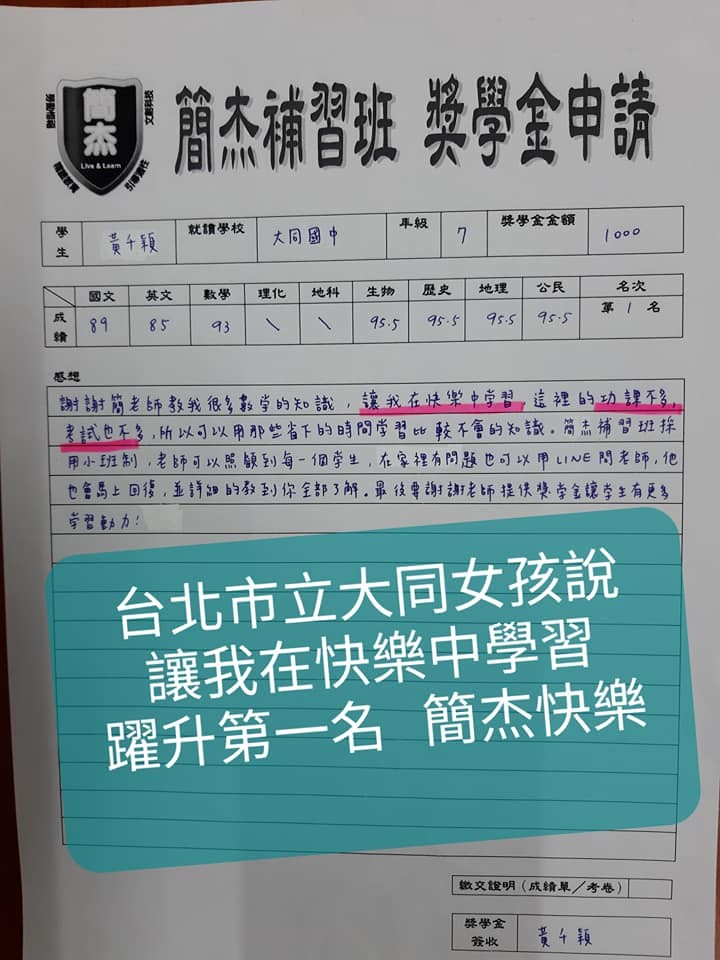 簡杰
Live & Learn
文創科技
簡杰補習班 獎學金申請
學生 黃千穎 就讀學校 大同國中 年級 7 獎學金金額 1000
國文 英文 數學 理化 地科 生物 歷史 地理 公民 名次
成績 89 85 93 \ \ 95.5 95.5 95.5 95.5 第 1 名
感想
謝謝簡老師教我很多數學的知識，讓我在快樂中學習，這裡的功課不多，
考試也不多，所以可以用那些省下的時間學習比較不會的知識。簡杰補習班採
用小班制，老師可以照顧到每一個學生，在家裡有問題也可以用LINE問老師，他
也會馬上回復，並詳細的教到你全部了解。最後要謝謝老師提供獎學金讓學生有更多
學習動力！
台北市立大同女孩說
讓我在快樂中學習
躍升第一名 簡杰快樂
繳交證明（成績單／考卷）
獎學金簽收 黃千穎